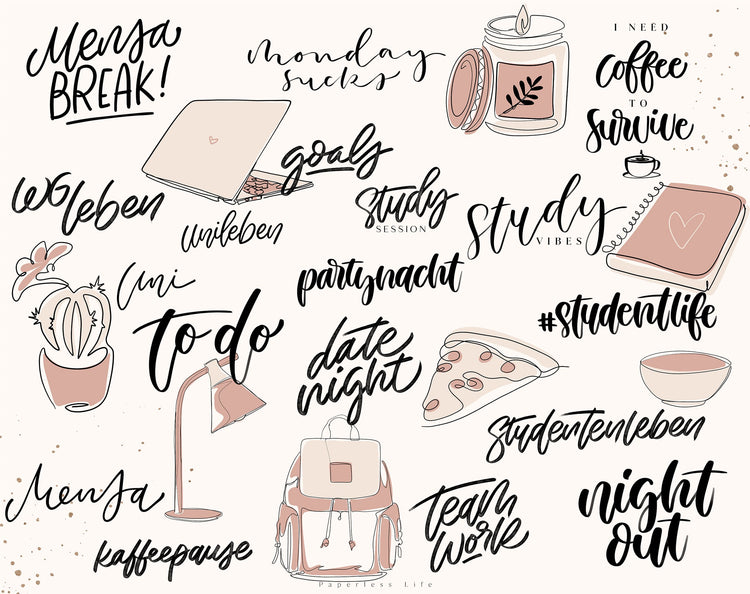 Mensa
BREAK!
monday
sucks
I NEED
coffee
TO
survive
goals
WG
leben
Study
SESSION
study
VIBES
Unileben
Uni
partynacht
#studentlife
to do
date
night
Studentenleben
Mensa
kaffeepause
TEAM
WORK
night
out
Paperless Life